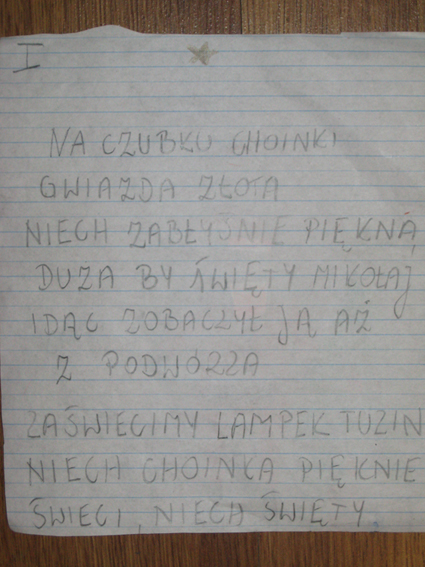 I
NA CZUBKU CHOINKI
GWIAZDA ZŁOTA
NIECH ZABŁYŚNIE PIĘKNĄ
DUZA BY ŚWIĘTY MIKOŁAJ
IDĄC ZOBACZYŁ JĄ AŻ
Z PODWÓZZA
ZAŚWIECIMY LAMPEK TUZIN
NIECH CHOINKA PIĘKNIE
ŚWIECI, NIECH ŚWIĘTY